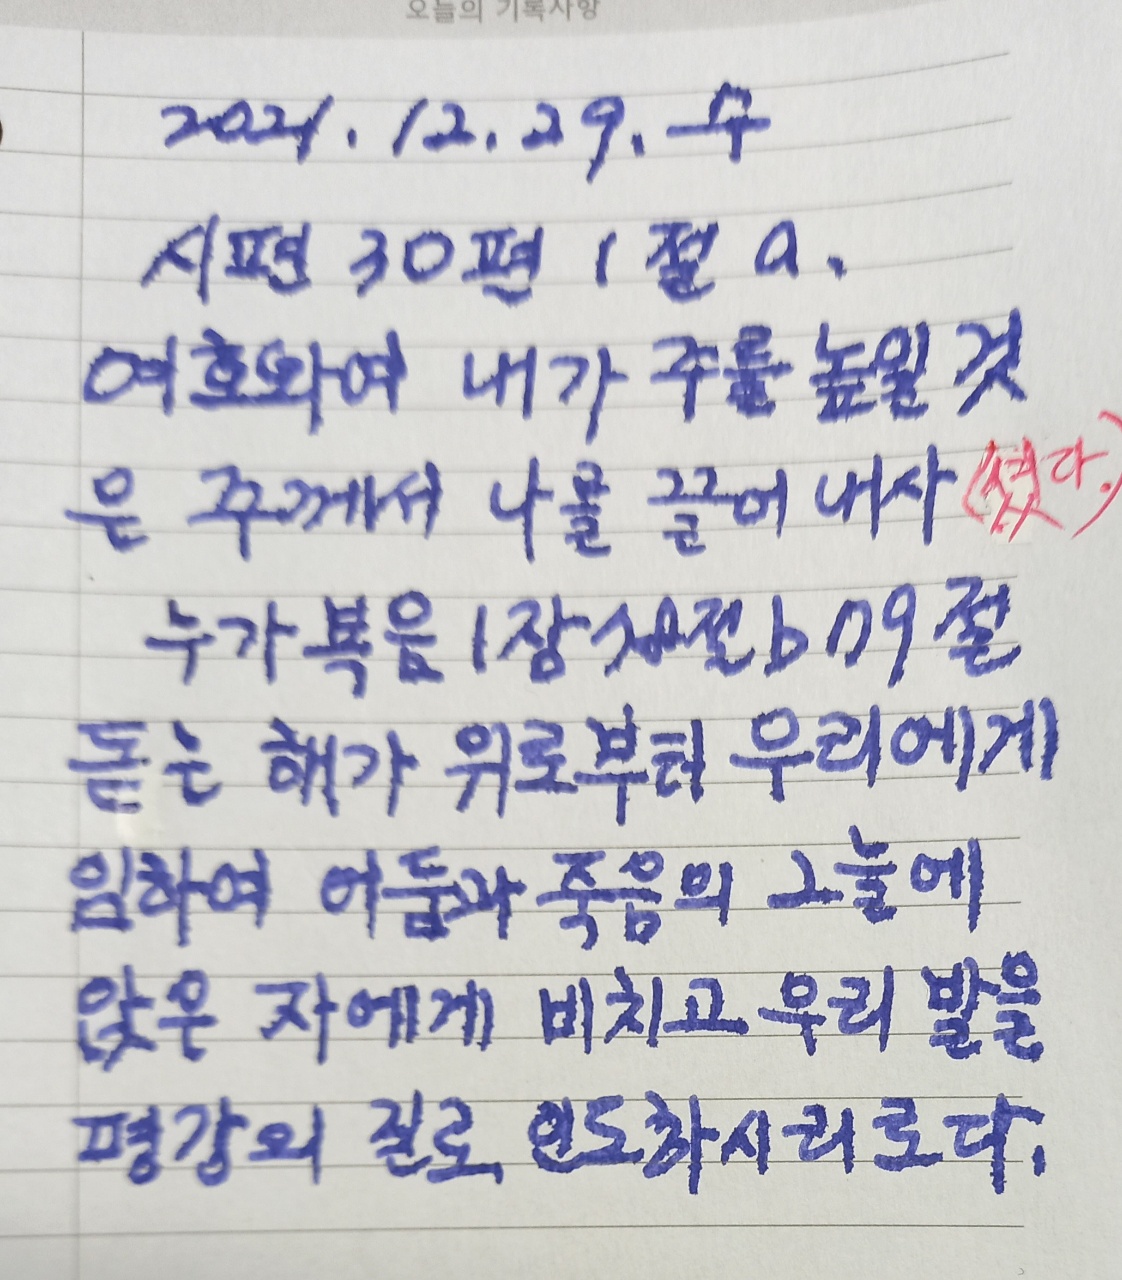 오늘의 기록사항
2021. 12. 29. 수
시편 30편 1절 a.
여호와여 내가 주를 높일 것
은 주께서 나를 끌어 내사 (셨다.)
누가복음 1장 절b 79절
돋는 해가 위로부터 우리에게
임하여 어둠과 죽음의 그늘에
앉은 자에게 비치고 우리 발을
평강의 길로 인도하시리로다.